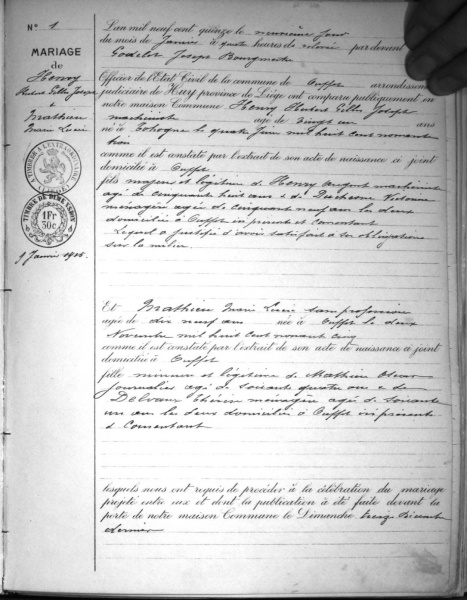 N° 1
MARIAGE
de
Henry
Hubert Gilles Joseph
&
Mathieu
Marie Lucie
TIMBRE DE DIMENSION
1Fr
50c
9 Janvier 1915.
L'an mil neuf cent quinze le neuvième jour
du mois de Janvier à quatre heures de relevée par devant
Godelet Joseph Bourgmestre
Officier de l'Etat Civil de la commune de Ouffet arrondissement
judiciaire de Huy province de Liège ont comparu publiquement en
notre maison Commune Henry Hubert Gilles Joseph
machiniste âgé de vingt un ans
né à Tohogne le quatre Juin mil huit cent nonante
trois
comme il est constaté par l'extrait de son acte de naissance ci joint
domicilié à Ouffet
fils majeur et légitime de Henry August machiniste
âgé de cinquante huit ans & de Duchesne Victorine
ménagère agée de cinquante neuf ans les deux
domiciliés à Ouffet ici présents et consentant
Lequel a justifié d'avoir satisfait à ses obligations
sur la milice.
Et Mathieu Marie Lucie sans profession
agée de dix neuf ans née à Ouffet le deux
Novembre mil huit cent nonante cinq
comme il est constaté par l'extrait de son acte de naissance ci joint
domiciliée à Ouffet
fille mineure et légitime de Mathieu Oscar
journalier agé de soixante quatre ans & de
Delvaux Thérèse ménagère agée de soixante
un ans les deux domiciliés à Ouffet ici présents
& Consentant
lesquels nous ont requis de procéder à la célébration du mariage
projeté entre eux et dont la publication a été faite devant la
porte de notre maison Commune le Dimanche treize Décembre
dernier